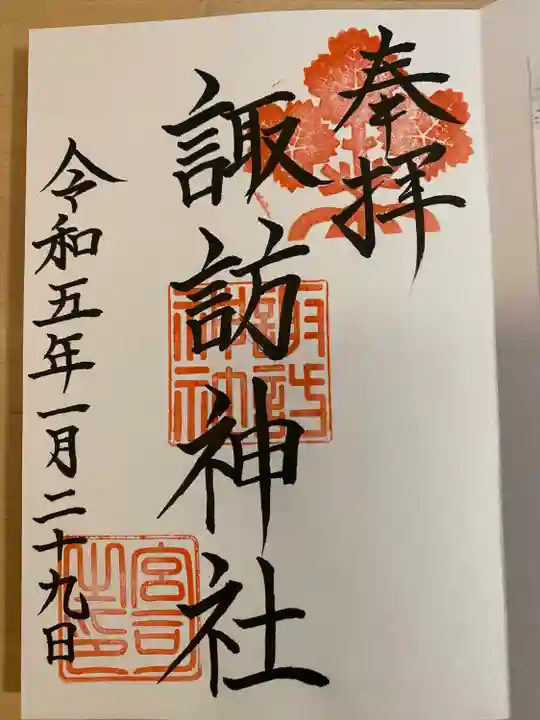 奉拝
諏訪神社
諏訪神社
令和五年一月二十九日
宮司之印